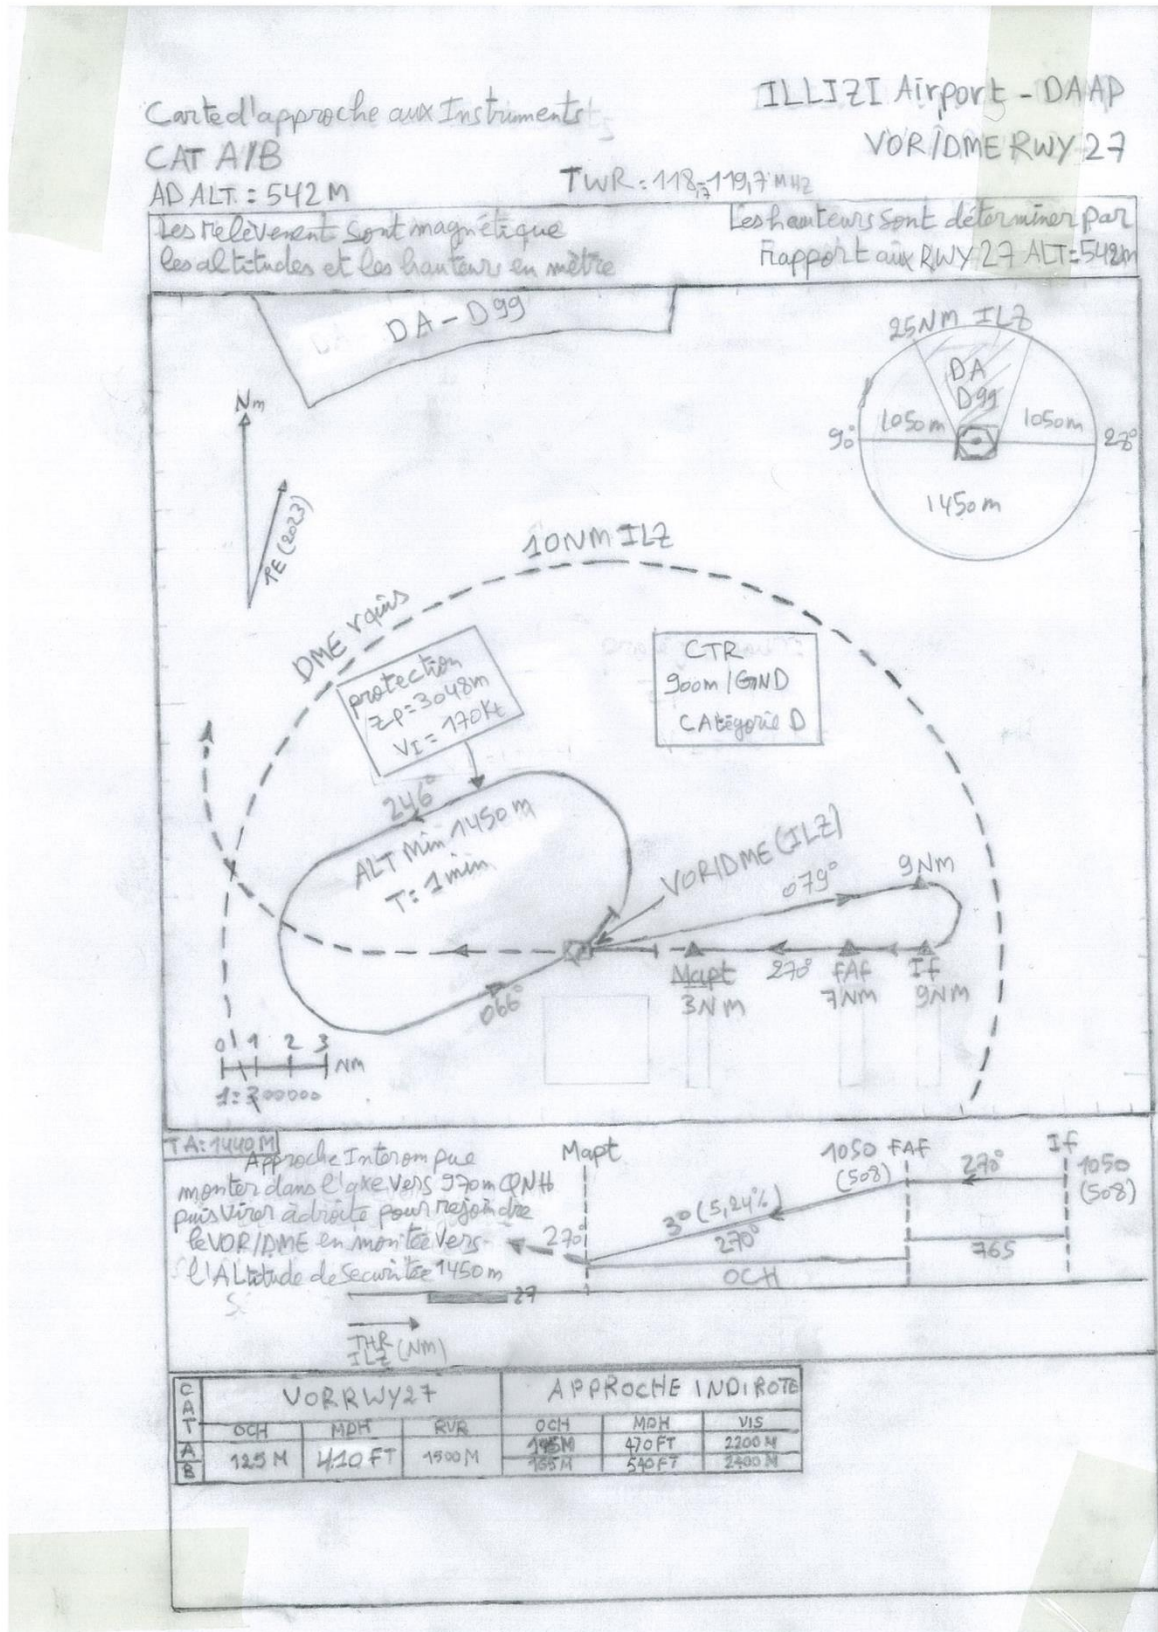 Carte d'approche aux Instruments
CAT A/B
AD ALT : 542 M
ILLIZI Airport - DAAP
VOR/DME RWY 27
TWR : 118,7-119,7 MHZ
Les relèvement sont magnétique
les altitudes et les hauteurs en mètre
Les hauteurs sont déterminer par
Rapport aux RWY 27 ALT=542m
DA-D99
25NM ILZ
DA
D99
1050m
1050m
90°
270°
1450m
Nm
1°E(2023)
10NM ILZ
DME
protection
ZP=3048m
VI=170Kt
CTR
900m/GND
CAtégorie D
246°
ALT Min 1450m
T=1min
066°
VOR/DME (ILZ)
079°
9Nm
Mapt
3Nm
270°
FAF
7NM
If
9NM
0 1 2 3 NM
TA:1440M
Approche Interompue
monter dans l'axe vers 970m QNH
puis virer à droite pour rejoindre
le VOR/DME en montée vers
l'Altitude de Securitée 1450m
Mapt
1050 FAF
(508)
270°
If
1050
(508)
3° (5,24%)
270°
270°
765
OCH
27
THR
ILZ (NM)
CAT
VORRWY27
APPROCHE INDIROTE
OCH MDH RVR OCH MDH VIS
A 470FT 2200M
B 125M 410FT 1500M 165M 540FT 2400M